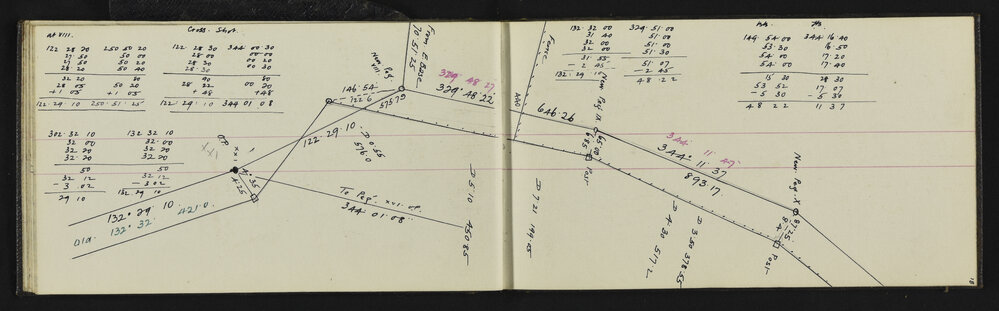 Cross. Shot.
at VIII.
122 28 20   250 50 20
27 50   50 00
27 50   50 20
28 20   50 40
32 20   80
28 05   50 20
+1 05   +1 05
122. 29. 10   250. 51. 25
122 28 30   344 00 30
28 00   00 00
28 30   00 20
28 30   00 30
90   80
28 22   00 20
+ 48   + 48
122. 29. 10   344 01 08
302. 32 10   132 32 10
32 00   32 00
32 20   32 20
32 20   32 20
50   50
32 12   32 12
- 3. 02   - 3. 02
29 10   132 29 10
O.P.
XXI
7.35
4.25
132° 29' 10.
Old. 132° 32'   421.0.
New Peg VIII.
146.54
122.6
575.79
122. 29. 10.
D 0.55
576.0
From E Base
70. 51. 25
329 48 27
329. 48. 22
To Peg. XVI. OP.
344. 01. 08.
D 5. 10
450.85
Fence
646.26
New Peg IX
Post
D 7. 21
344° 11' 47"
344° 11' 37
893.17
D 4. 30   517.2
D 3. 50   378.55
New Peg X
Post
132. 32. 00   329. 51. 00
31 40   51. 00
32 00   51. 00
32 00   51 00
31. 55   51. 07
- 2 45   - 2 45
132. 29. 10   48 22
149. 54. 00   344 16 40
53. 30   16. 50
54. 00   17 20
54. 00   17 40
15 30   28 30
53 52   17 07
- 5 30   - 5 30
48 22   11 37
18